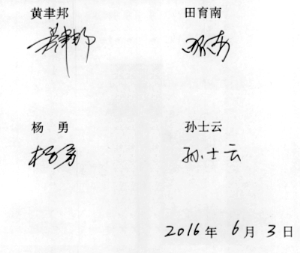 黄聿邦 田育南
黄聿邦 田育南
杨 勇 孙士云
杨勇 孙士云
2016 年 6 月 3 日